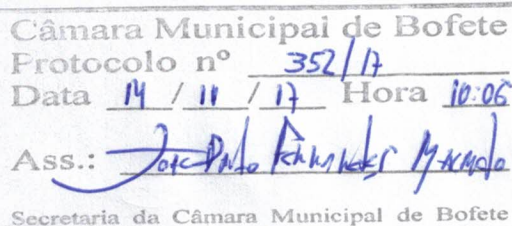 Câmara Municipal de Bofete
Protocolo nº 352/17
Data 14 / 11 / 17 Hora 10:06
Ass.: Jose
Secretaria da Câmara Municipal de Bofete